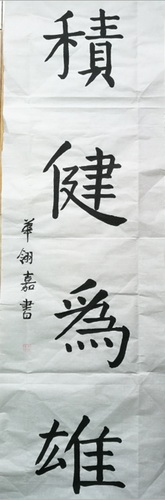 積健為雄
華翎嘉書